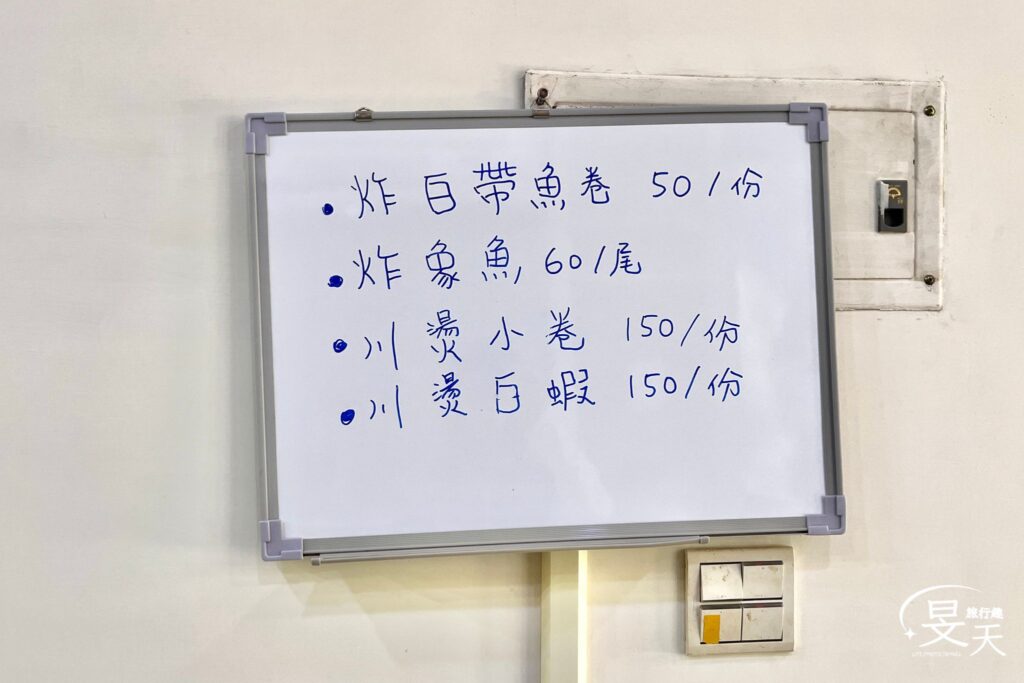 • 炸白帶魚卷 50/份
• 炸象魚 60/尾
• 川燙小卷 150/份
• 川燙白蝦 150/份
旅行趣
旻天